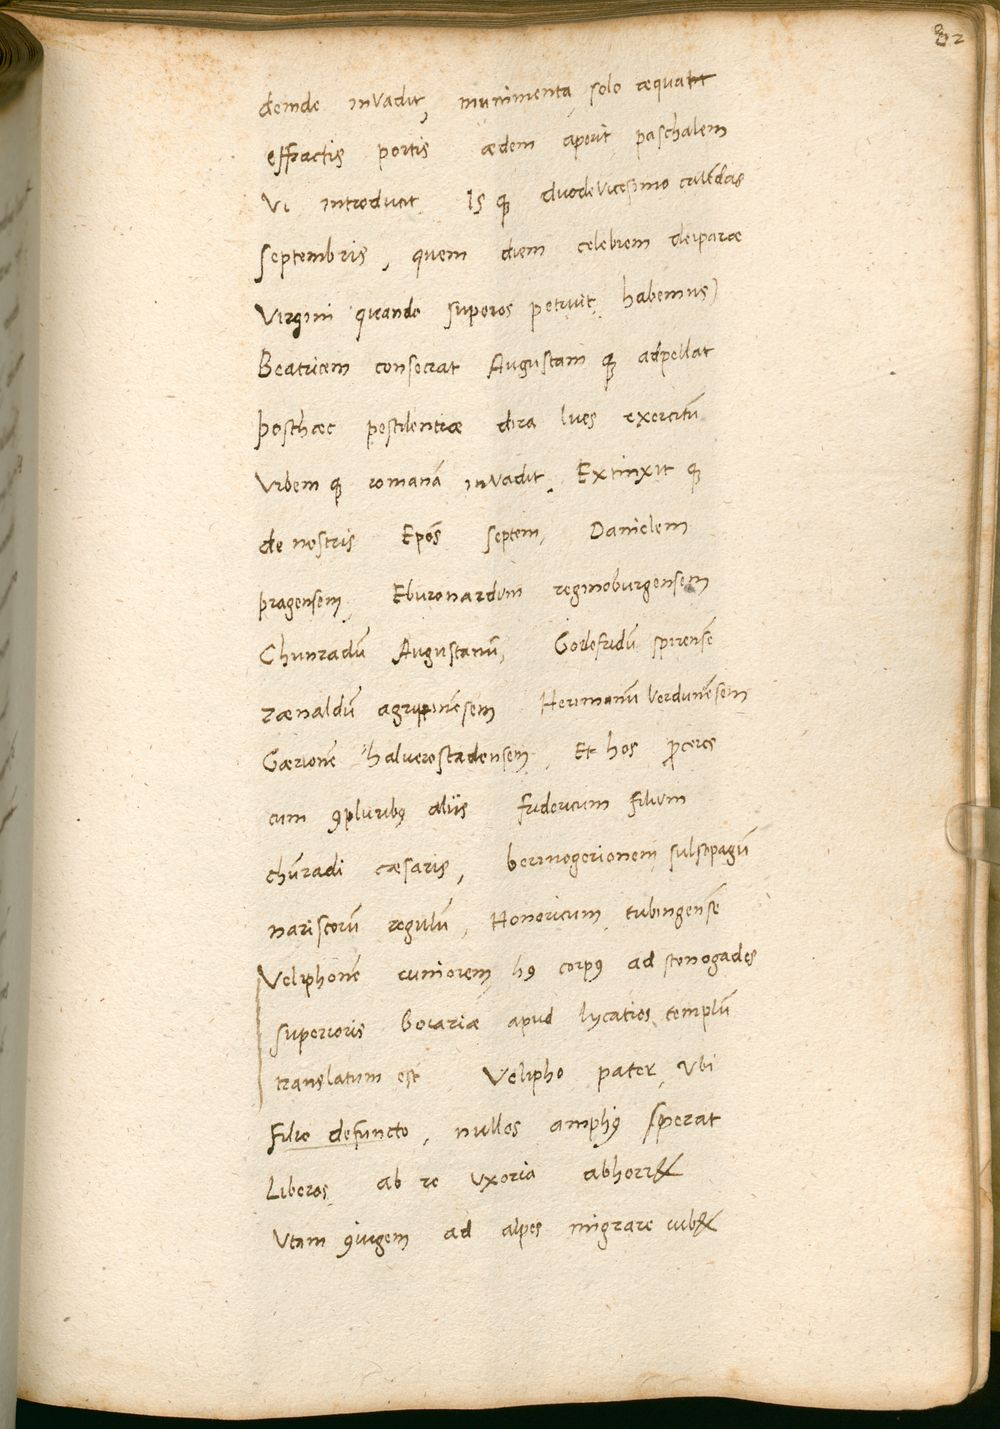 32
deinde invadit, munimenta solo æquant
effractis portis ædem aperit paschalem
Vi introducit Is q₃ duodevicesimo calēdas
septembris, quem diem celebrem deiparæ
Virgini quando superos petivit, habemus)
Beatricem consecrat Augustam q₃ adpellat
posthæc pestilentiæ dira lues exercitū
Vrbem q₃ romanā invadit. Extinxit q₃
de nostris Epōs septem, Danielem
pragensem, Eburonardum reginoburgensem
Chunradū Augustanū, Godefridū spirensē
Rænaldū agrippinēsem Herimanū Verdunēsem
Gærionē halverostadensem. Et hos proceres
cum ꝯpluribꝰ aliis fridericum filium
chūradi cæsaris, berinogerionem sulsopagū
nariscorū regulū, Honoricum tubingensē
Veliphonē iuniorem hꝰ corpꝰ ad stenogades
superioris Boiariæ apud lycatios templū
translatum est Velipho pater, Vbi
filio defuncto, nullos ampliꝰ sperat
Liberos ab re Vxoria abhorret
Vtam ꝯiugem ad alpes migrare iubet